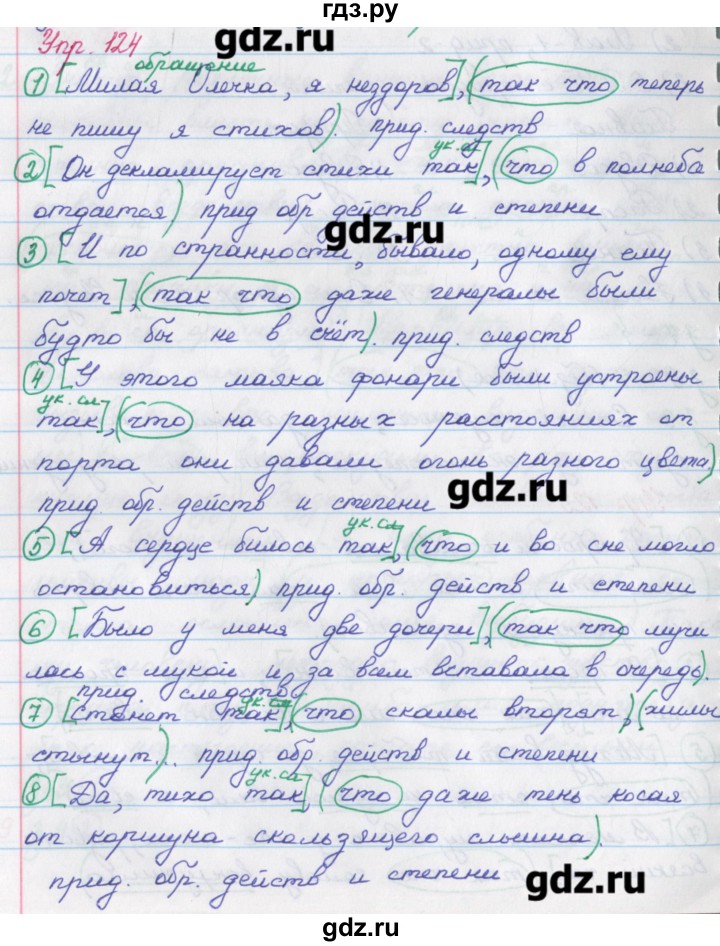 гдз.ру
Упр. 124
gdz.ru
обращение
① [Милая Олечка, я нездоров], (так что теперь
не пишу я стихов). прид. следств
ук. сл
② [Он декламирует стихи так], (что в полнеба
отдается) прид обр действ и степени
gdz.ru
③ [И по странности, бывало, одному ему
почет], (так что даже генералы были
будто бы не в счёт). прид. следств
④ [У этого маяка фонари были устроены
ук. сл
так], (что на разных расстояниях от
порта они давали огонь разного цвета.)
прид. обр. действ и степени
gdz.ru
ук. сл
⑤ [А сердце билось так], (что и во сне могло
остановиться) прид. обр. действ и степени
⑥ [Было у меня две дочери], (так что мучи
лась с мукой и за всем вставала в очередь).
прид. следств
ук. сл
⑦ [стонет так], (что скалы вторят), (жилы
стынут)... прид. обр действ и степени
ук. сл
⑧ [Да, тихо так] (что даже тень косая
от коршуна скользящего слышна).
прид. обр. действ и степени
gdz.ru
gdz.ru